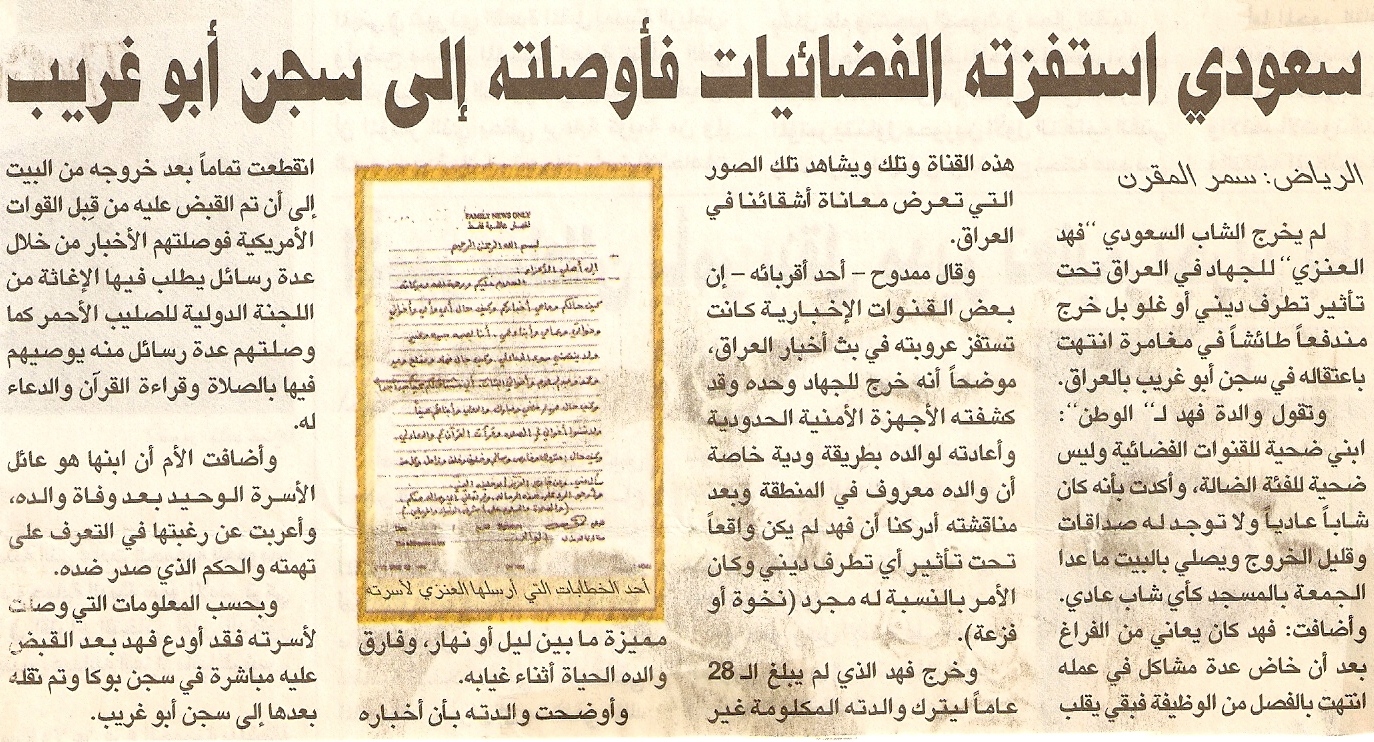 سعودي استفزته الفضائيات فأوصلته إلى سجن أبو غريب
الرياض: سمر المقرن
لم يخرج الشاب السعودي "فهد
العنزي" للجهاد في العراق تحت
تأثير تطرف ديني أو غلو بل خرج
مندفعاً طائشاً في مغامرة انتهت
باعتقاله في سجن أبو غريب بالعراق.
وتقول والدة فهد لـ "الوطن":
ابني ضحية للقنوات الفضائية وليس
ضحية للفئة الضالة، وأكدت بأنه كان
شاباً عادياً ولا توجد له صداقات
وقليل الخروج ويصلي بالبيت ما عدا
الجمعة بالمسجد كأي شاب عادي.
وأضافت: فهد كان يعاني من الفراغ
بعد أن خاض عدة مشاكل في عمله
انتهت بالفصل من الوظيفة فبقي يقلب
هذه القناة وتلك ويشاهد تلك الصور
التي تعرض معاناة أشقائنا في
العراق.
وقال ممدوح - أحد أقربائه - إن
بعض القنوات الإخبارية كانت
تستفز عروبته في بث أخبار العراق،
موضحاً أنه خرج للجهاد وحده وقد
كشفته الأجهزة الأمنية الحدودية
وأعادته لوالده بطريقة ودية خاصة
أن والده معروف في المنطقة وبعد
مناقشته أدركنا أن فهد لم يكن واقعاً
تحت تأثير أي تطرف ديني وكان
الأمر بالنسبة له مجرد (نخوة أو
فزعة).
وخرج فهد الذي لم يبلغ الـ 28
عاماً ليترك والدته المكلومة غير
FAMILY NEWS ONLY
بسم الله الرحمن الرحيم
أحد الخطابات التي أرسلها العنزي لأسرته
مميزة ما بين ليل أو نهار، وفارق
والده الحياة أثناء غيابه.
وأوضحت والدته بأن أخباره
انقطعت تماماً بعد خروجه من البيت
إلى أن تم القبض عليه من قِبل القوات
الأمريكية فوصلتهم الأخبار من خلال
عدة رسائل يطلب فيها الإغاثة من
اللجنة الدولية للصليب الأحمر كما
وصلتهم عدة رسائل منه يوصيهم
فيها بالصلاة وقراءة القرآن والدعاء
له.
وأضافت الأم أن ابنها هو عائل
الأسرة الوحيد بعد وفاة والده،
وأعربت عن رغبتها في التعرف على
تهمته والحكم الذي صدر ضده.
وبحسب المعلومات التي وصلت
لأسرته فقد أودع فهد بعد القبض
عليه مباشرة في سجن بوكا وتم نقله
بعدها إلى سجن أبو غريب.